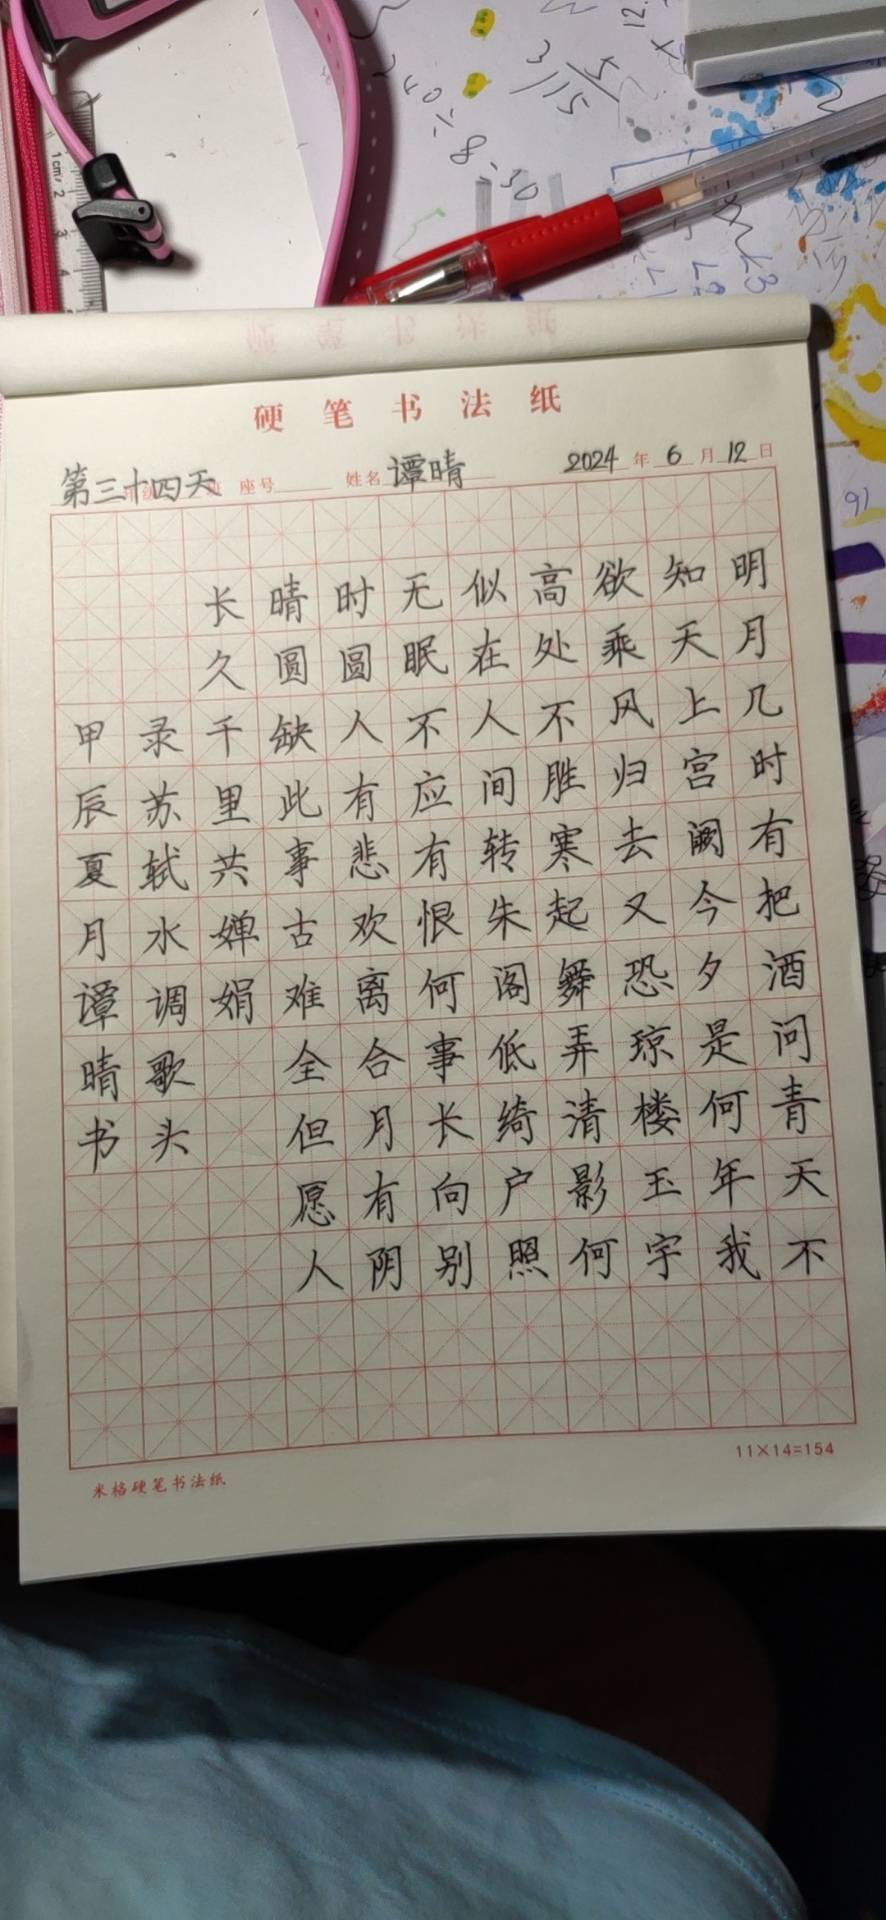 1cm 2 3 4
240÷8=30
硬笔书法纸
第三十四天 座号 姓名 谭晴 2024年6月12日
明月几时有把酒问青天不
知天上宫阙今夕是何年我
欲乘风归去又恐琼楼玉宇
高处不胜寒起舞弄清影何
似在人间转朱阁低绮户照
无眠不应有恨何事长向别
时圆人有悲欢离合月有阴
晴圆缺此事古难全但愿人
长久千里共婵娟
录苏轼水调歌头
甲辰夏月谭晴书
11×14=154
米格硬笔书法纸